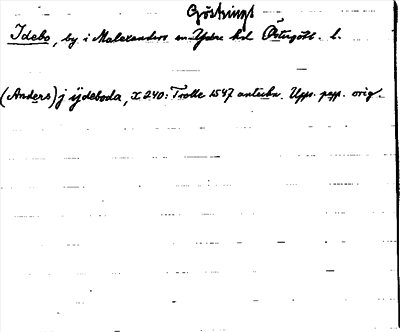 Göstrings
Idebo, by i Malexanders sn Ydre hd Östergötl. l.
(Anders) j ydeboda, X 240: Trolle 1547 anteckn. Upps. papp. orig.